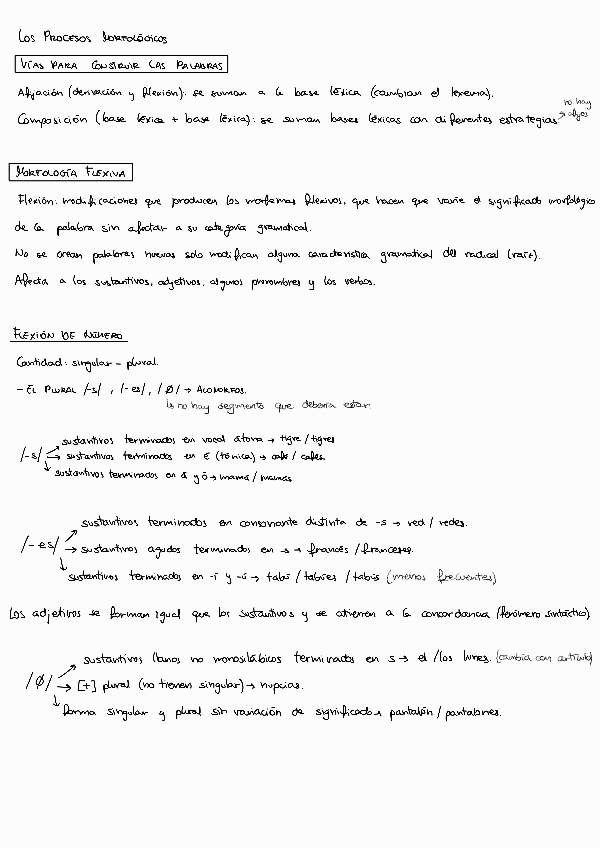 LOS PROCESOS MORFOLÓGICOS
VÍAS PARA CONSTRUIR LAS PALABRAS
Afijación (derivación y flexión): se suman a la base léxica (cambian el lexema).
no hay
Composición (base léxica + base léxica): se suman bases léxicas con diferentes estrategias → afijos
MORFOLOGÍA FLEXIVA
Flexión: modificaciones que producen los morfemas flexivos, que hacen que varíe el significado morfológico
de la palabra sin afectar a su categoría gramatical.
No se crean palabras nuevas solo modifican alguna característica gramatical del radical (raíz).
Afecta a los sustantivos, adjetivos, algunos pronombres y los verbos.
FLEXIÓN DE NÚMERO
Cantidad: singular - plural.
- EL PLURAL /-s/, /-es/, /Ø/ → ALOMORFOS.
↳ no hay segmento que debería estar
sustantivos terminados en vocal átona → tigre / tigres
/-s/ → sustantivos terminados en é (tónica) → café / cafés.
sustantivos terminados en á y ó → mamá / mamás
sustantivos terminados en consonante distinta de -s → red / redes.
/-es/ → sustantivos agudos terminados en -s → francés / franceses.
sustantivos terminados en -í y -ú → tabú / tabúes / tabús (menos frecuentes)
Los adjetivos se forman igual que los sustantivos y se atienen a la concordancia (fenómeno sintáctico)
sustantivos llanos no monosilábicos terminados en s → el / los lunes. (cambia con artículo)
/Ø/ → [+] plural (no tienen singular) → nupcias.
forma singular y plural sin variación de significado → pantalón / pantalones.